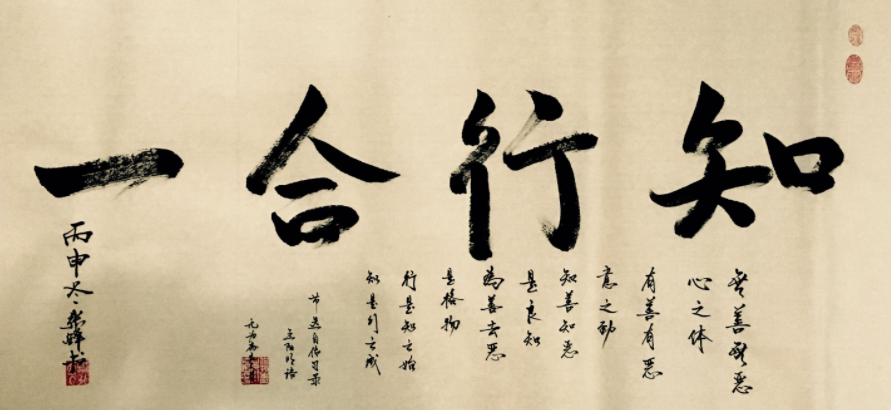 知行合一
無善無惡
心之体
有善有惡
意之動
知善知惡
是良知
為善去惡
是格物
行是知之始
知是行之成
节选自传习录
王阳明语
丙申冬